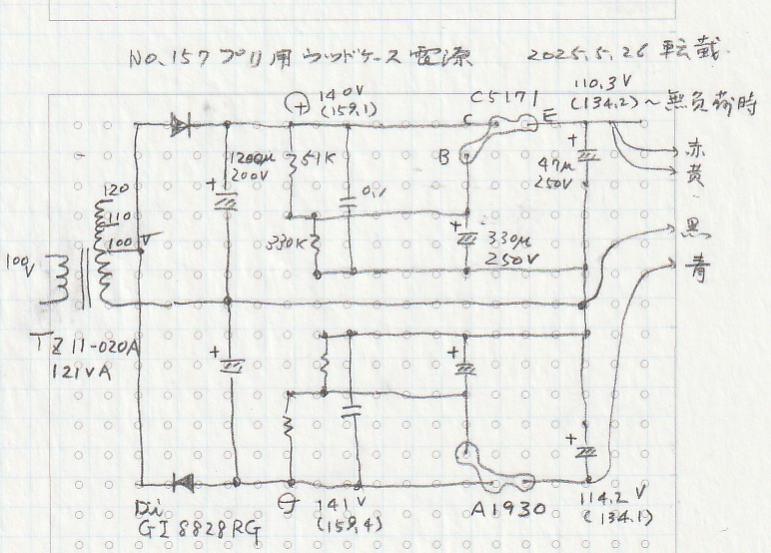 No.157 プリ用 ウッドケース 電源 2025.5.26 転載
⊕ 140V
(159.1)
C5171
C
E
B
110.3V
(134.2) ~ 無負荷時
赤
黄
黒
青
+
1200μ
200V
51K
0.1
330K
+
330μ
250V
+
47μ
250V
120
110
100 V
100V
TZ11-020A
121VA
+
+
+
Di
GI8828RG
⊖ 141V
(159.4)
A1930
114.2V
(134.1)